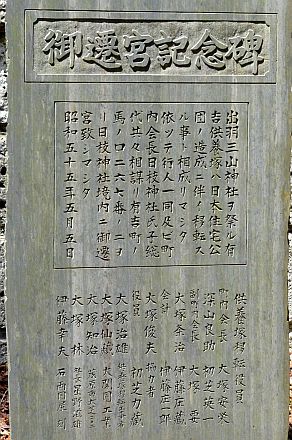 御遷宮記念碑
出羽三山神社ヲ祭ル有
吉供養塚ハ日本住宅公
団ノ造成ニ伴イ移転ス
ル事ト相成リマシタ
依ツテ行人一同及ビ町
内会長日枝神社氏子総
代共々相謀リ有吉町ノ
馬ノ口二六七番ノ二ヲ
リ日枝神社境内ニ御遷
宮致シマシタ
昭和五十五年五月五日
供養塚移転役員
町内会長 大塚宏栄
深山良助 初芝英一
副町内会長 大塚 要
大塚条治 伊藤庄蔵
会計 伊藤庄一郎
大塚俊夫 協力者
役員 初芝力蔵
大塚治雄
大塚仙蔵 大関園工業
大塚知治
大塚 林 星野滋雄
伊藤幸夫 石西国彦刻